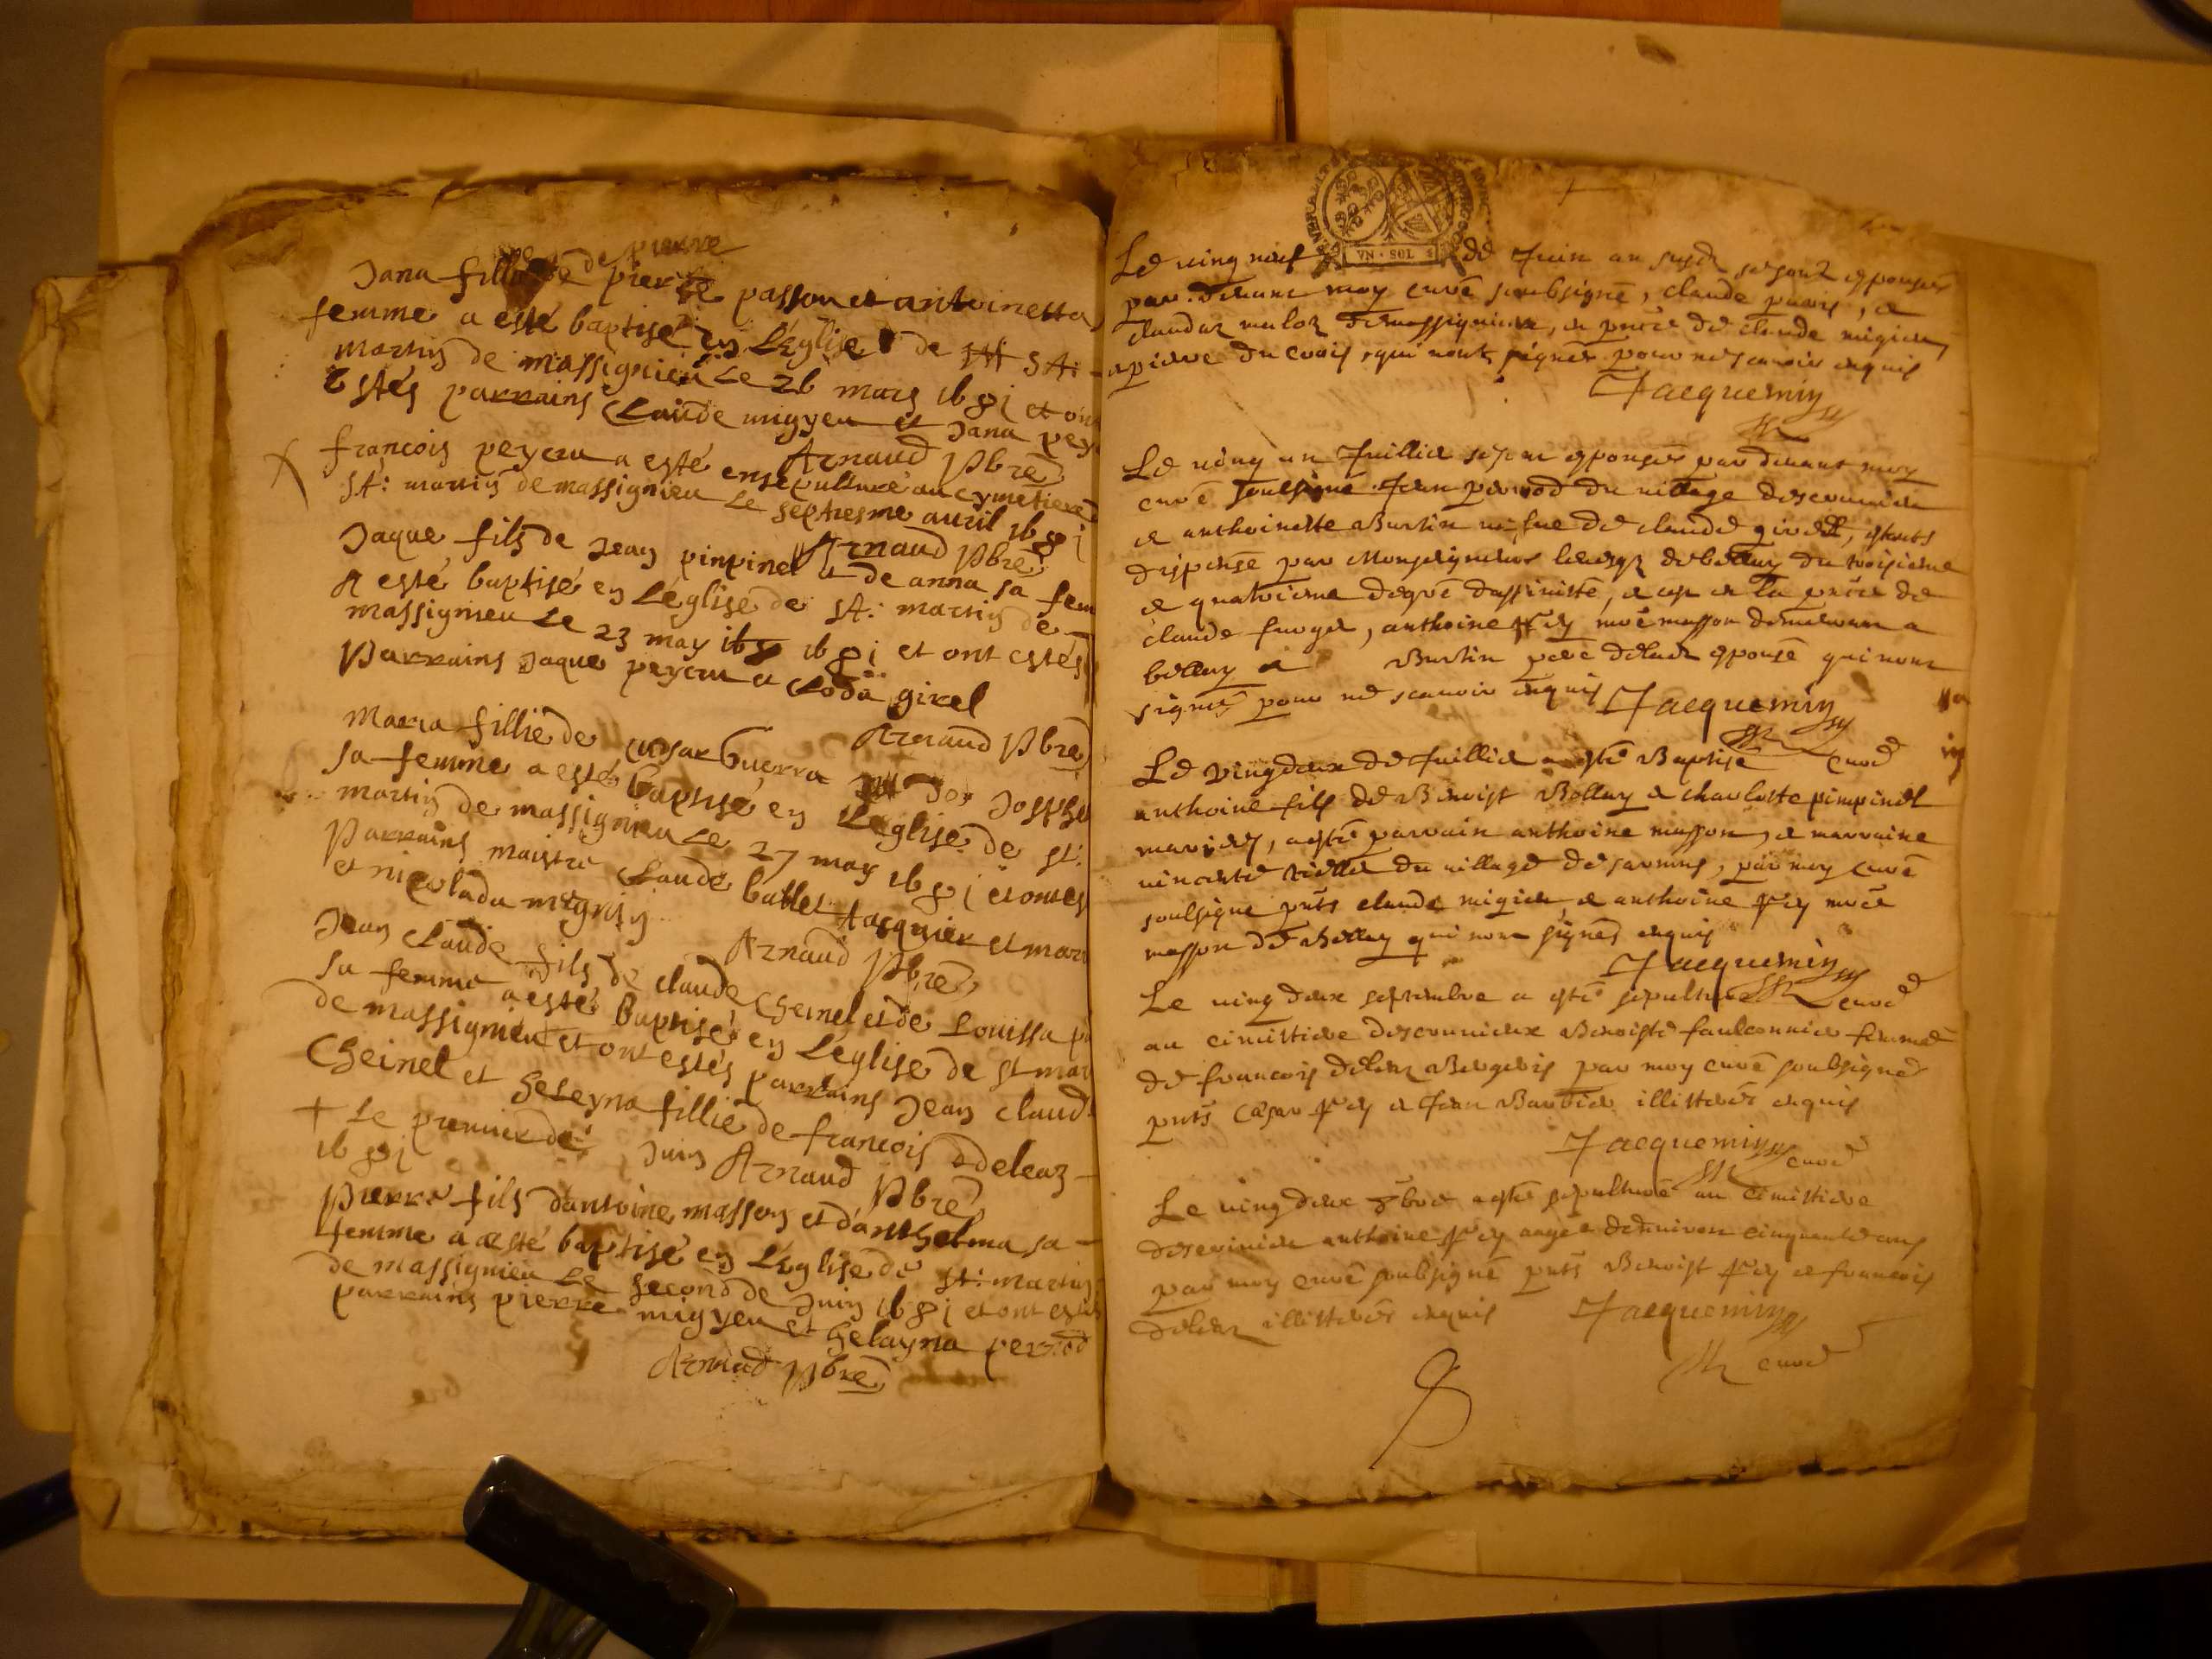 de pierre
Jana fillie de pierre passon et antoinetta
femme a esté baptisé en Léglise de St:
martin de massignieu Le 26 mars 16 81 et ont
estés parrains Claude migyeu et Jana pey
Arnaud pbre
françois peycru a esté ensepulturé au cymetiere
St: martin de massignieu Le septiesme auril 16 81
Arnaud pbre
Jaque fils de Jean pinpinel et de anna sa fem
A esté baptisé en Léglise de St: martin de
massignieu Le 23 may 16 81 et ont estés
parrains Jaque peycru et Coda girel
Arnaud pbre
maria fillie de Cusar Guerra Josephe
sa femme a esté baptisé en Léglise de St:
martin de massignieu Le 27 may 16 81 et ont es
parrains maistre Claude ballet et mari
et nicolada
Arnaud pbre
Jean Claude fils de claude Cheinel et de Louissa pi
sa femme a esté baptisé en Léglise de St mar
de massignieu et ont estés parrains Jean claude
Cheinel et heleyna fillie de francois deleaz
+ Le premier de Juin
16 81 Arnaud pbre
pierre fils d'antoine masson et d'anthelma sa
femme a esté baptisé en Léglise de St: martin
de massignieu Le second de Juin 16 81 et ont estés
parrains pierre migyeu et helayna perrod
Arnaud pbre
VN · SOL
Le ving neuf de Juin an susdt se sont espousés
par deuant moy curé soubsigné, claude paris, et
claudaz de massignieu, et pnce de claude migieu
et pierre du crois, qui nont signés pour ne scauoir enquis
Jacquemin
Le ving un Juillet se sont espousés par deuant moy
curé soulsigné Jean perrod du village descriuieu
et anthoinette Burtin vefue de claude girel, estants
dispensé par Monseigneur de belley du troisieme
et quatrieme degré dassinité, et en la pnce de
claude furget, anthoine frey mre masson a
belley et Burtin pere de lad espouse qui nont
signés pour ne scauoir enquis Jacquemin
curé
Le vingdeux de Juillet a esté Baptisé
anthoine fils de Benoist Bolley et charlotte pimpinel
mariés, a esté parrain anthoine masson, et marraine
vincente du village de, par moy curé
soulsigné pnts claude migieu et anthoine frey mre
masson de Belley qui nont signés enquis
Jacquemin
curé
Le ving deux septembre a esté sepulturée
au cimittiere descriuieux Benoiste faulconnier femme
de francois delaz Bergeris par moy curé soubsigné
pnts Cæsar frey et Jean Barbier illitterés enquis
Jacquemin
curé
Le ving deux 8bre a esté sepulturé au cimittiere
descriuieu anthoine frey aagé denuiron cinquante ans
par moy curé soubsigné pnts Benoist frey et francois
delaz illitterés enquis Jacquemin
curé